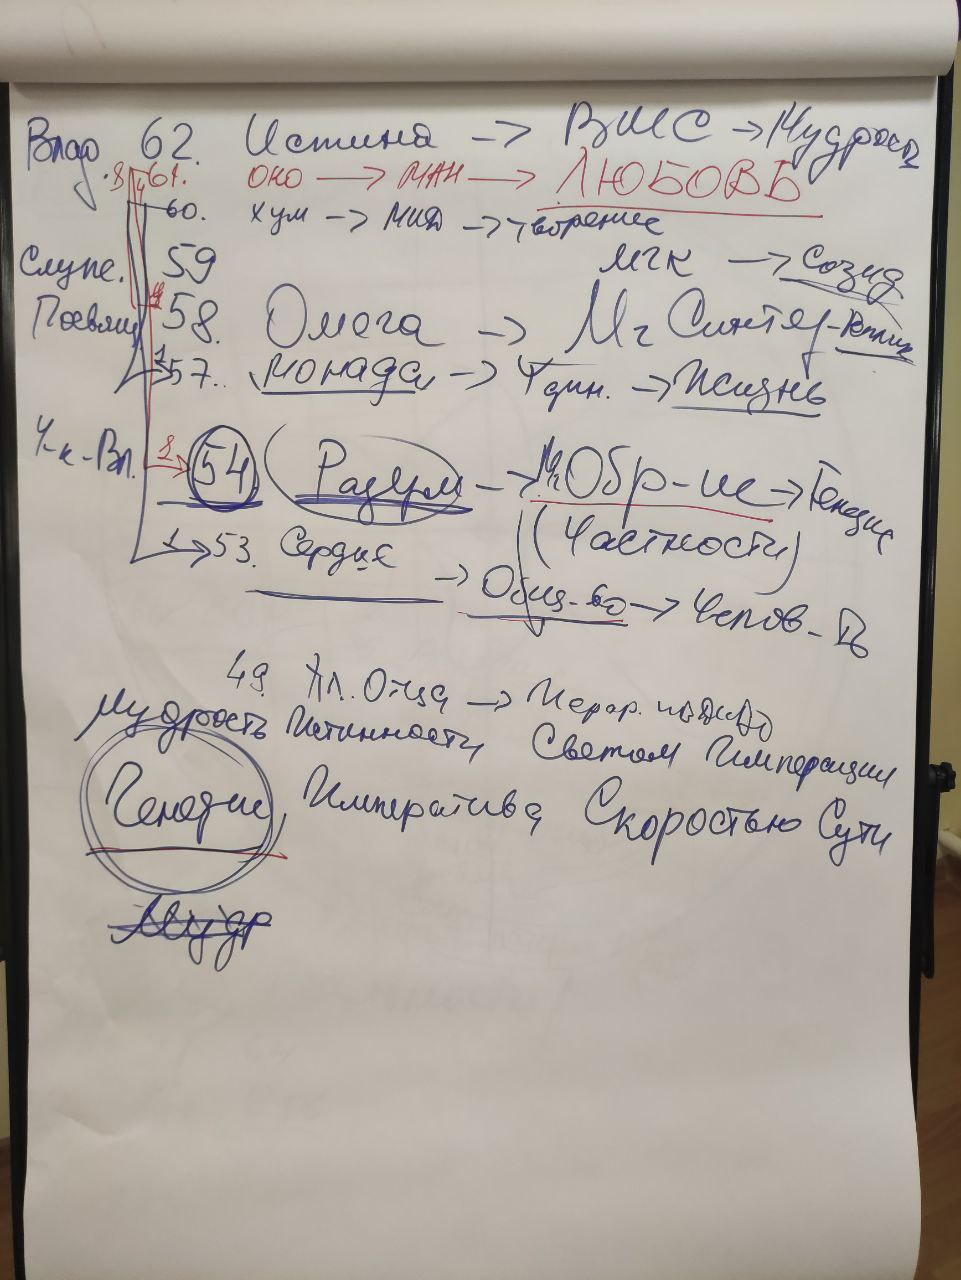 Владо. 62. Истина -> ВШС -> Мудрость
8 61. ОКО -> МАН -> ЛЮБОВЬ
4 60. ХУМ -> МИД -> Творение
МГК -> Созид
Служе. 59
Посвящ 58. Омега -> Мг Синтез -
1 57. Монада -> -> Жизнь
Ч-к-Вл.
1 54 Разум -> Обр-ие ->
(Частности)
1 53. Сердце -> Общ-во -> Челов-
49. Хл. Отца -> Иерар.
Мудрость Истинности Светом Империции
Генезис Императива Скоростью Сути
Мудр